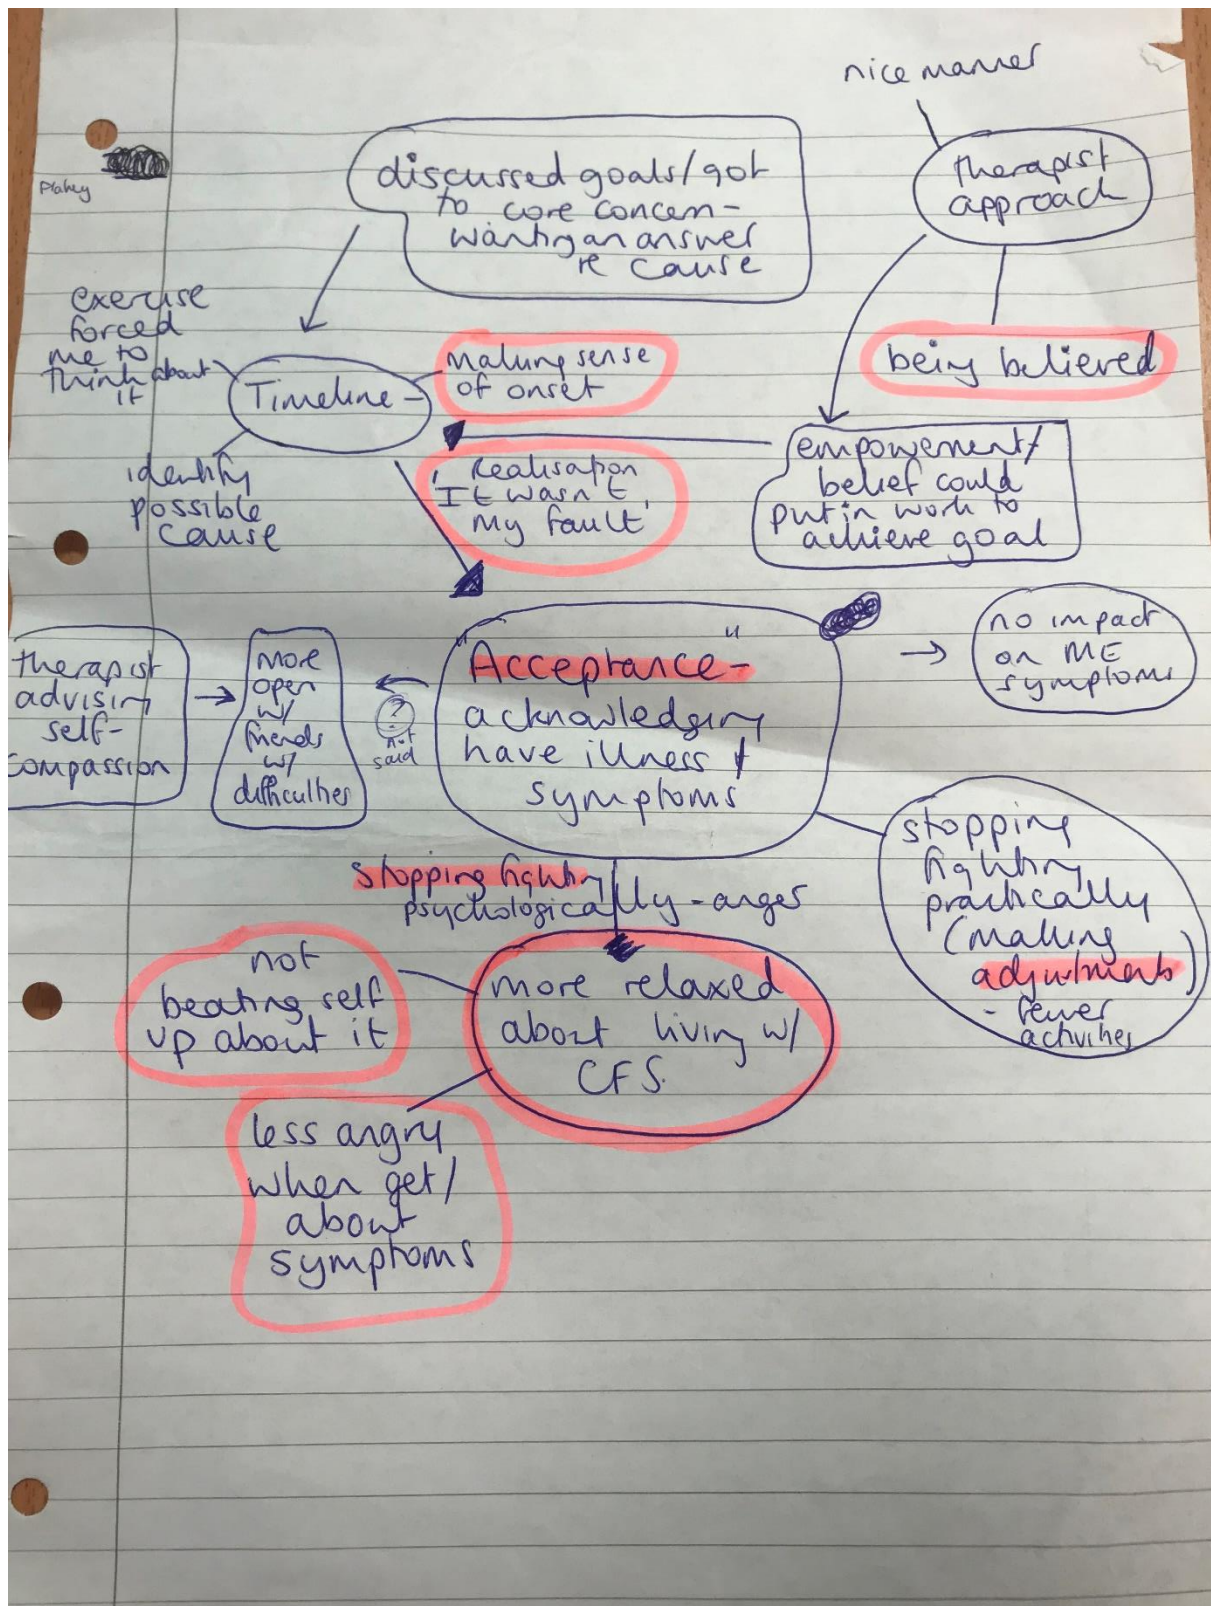 nice manner
discussed goals/got
to core concern-
wanting an answer
re cause
therapist
approach
exercise
forced
me to
think about
it
Timeline-
making sense
of onset
being believed
identify
possible
cause
Realisation
'It wasn't
my fault'
empowerment/
belief could
put in work to
achieve goal
therapist
advising
self-
compassion
more
open
w/
friends
w/
difficulties
?
not
said
"Acceptance-"
acknowledging
have illness +
symptoms
no impact
on ME
symptoms
stopping
fighting
practically
(making
adjustments)
- fewer
activities
stopping fighting
psychologically - anger
not
beating self
up about it
more relaxed
about living w/
CFS.
less angry
when get/
about
symptoms